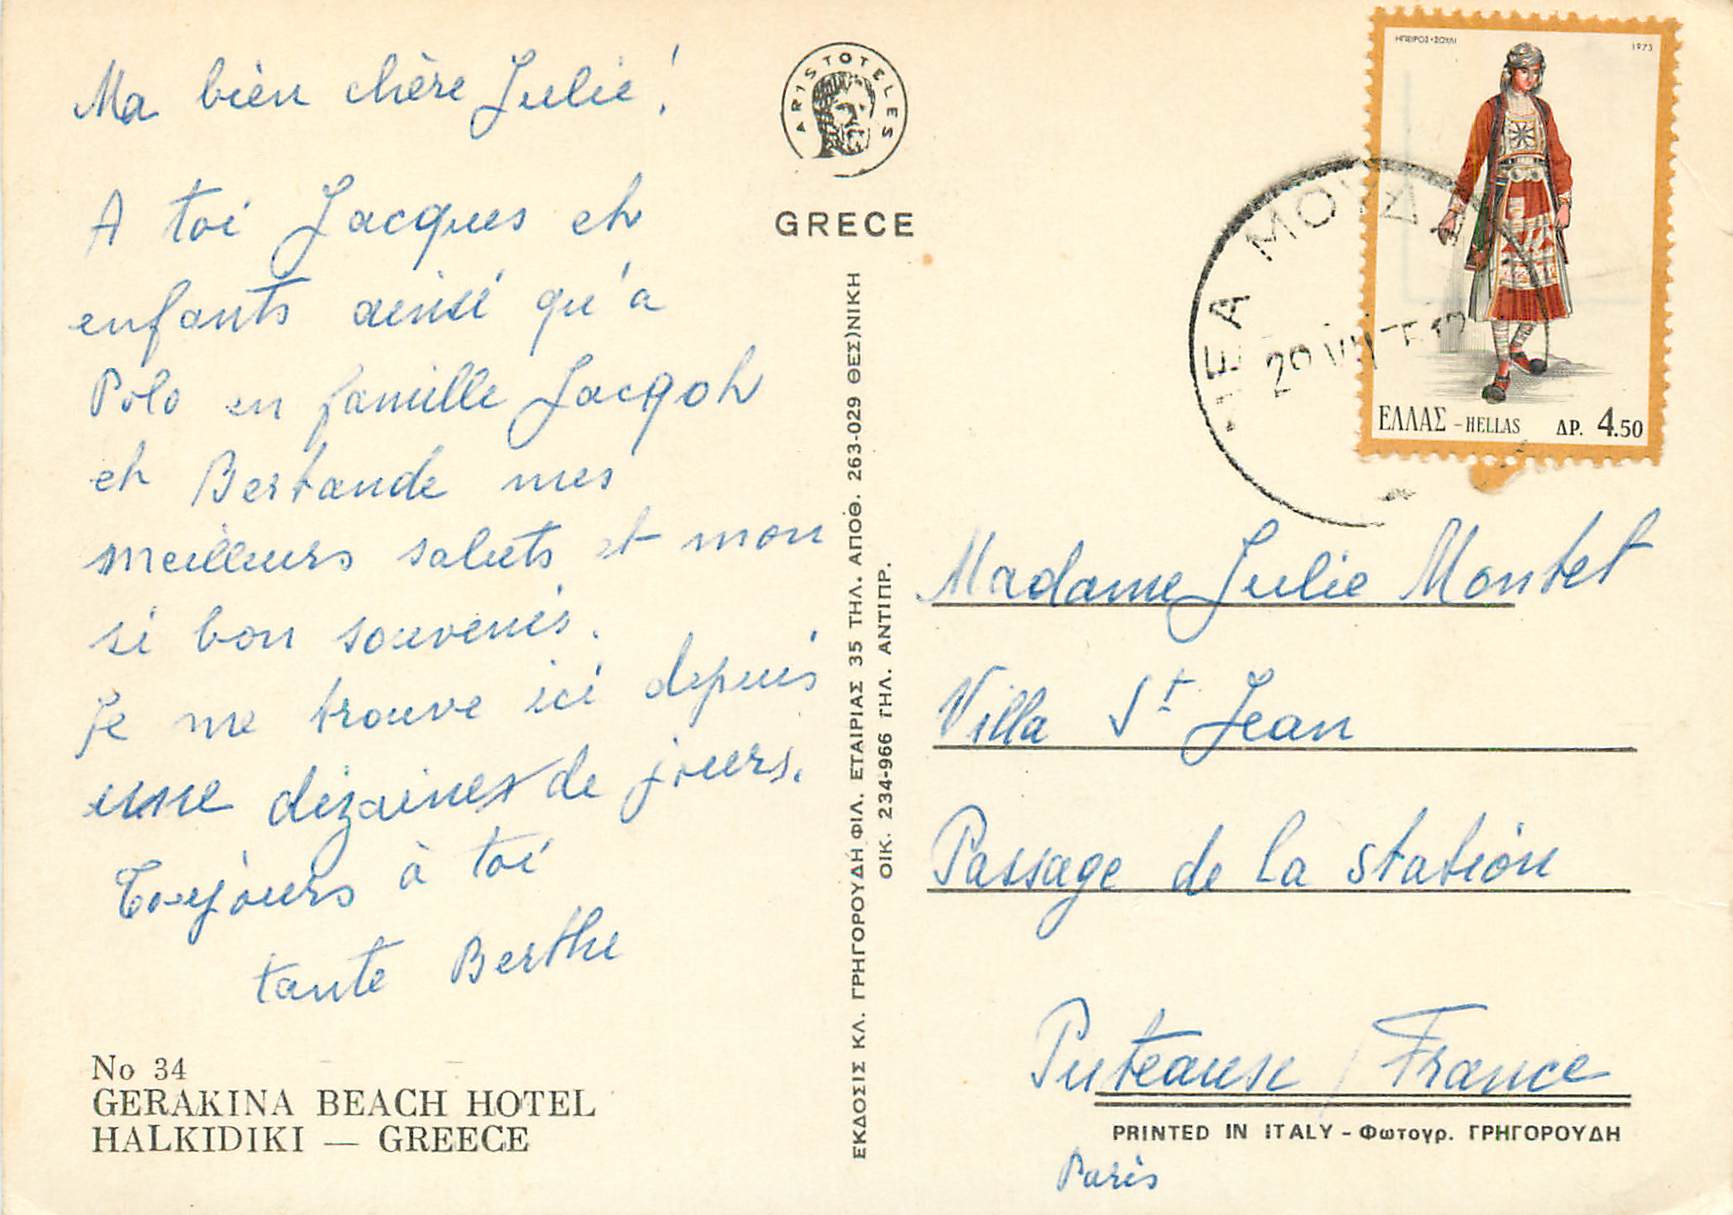 Ma bien chère Julie!
A toi Jacques et
enfants ainsi qu'à
Polo en famille Jacqot
et Bertande mes
meilleurs saluts et mon
si bon souvenis.
Je me trouve ici depuis
une dizaines de jours.
Toujours à toi
tante Berthe
No 34
GERAKINA BEACH HOTEL
HALKIDIKI — GREECE
ARISTOTELES
GRECE
ΕΚΔΟΣΙΣ ΚΛ. ΓΡΗΓΟΡΟΥΔΗ ΦΙΛ. ΕΤΑΙΡΙΑΣ 35 ΤΗΛ. ΑΠΟΘ. 263-029 ΘΕΣ)ΝΙΚΗ
ΟΙΚ. 234-966 ΤΗΛ. ΑΝΤΙΠΡ.
ΗΠΕΙΡΟΣ - ΣΟΥΛΙ 1973
ΕΛΛΑΣ - HELLAS ΔΡ. 4.50
ΝΕΑ ΜΟΥΔ
Madame Julie Montet
Villa St Jean
Passage de la station
Puteause / France
PRINTED IN ITALY - Φωτογρ. ΓΡΗΓΟΡΟΥΔΗ
Paris